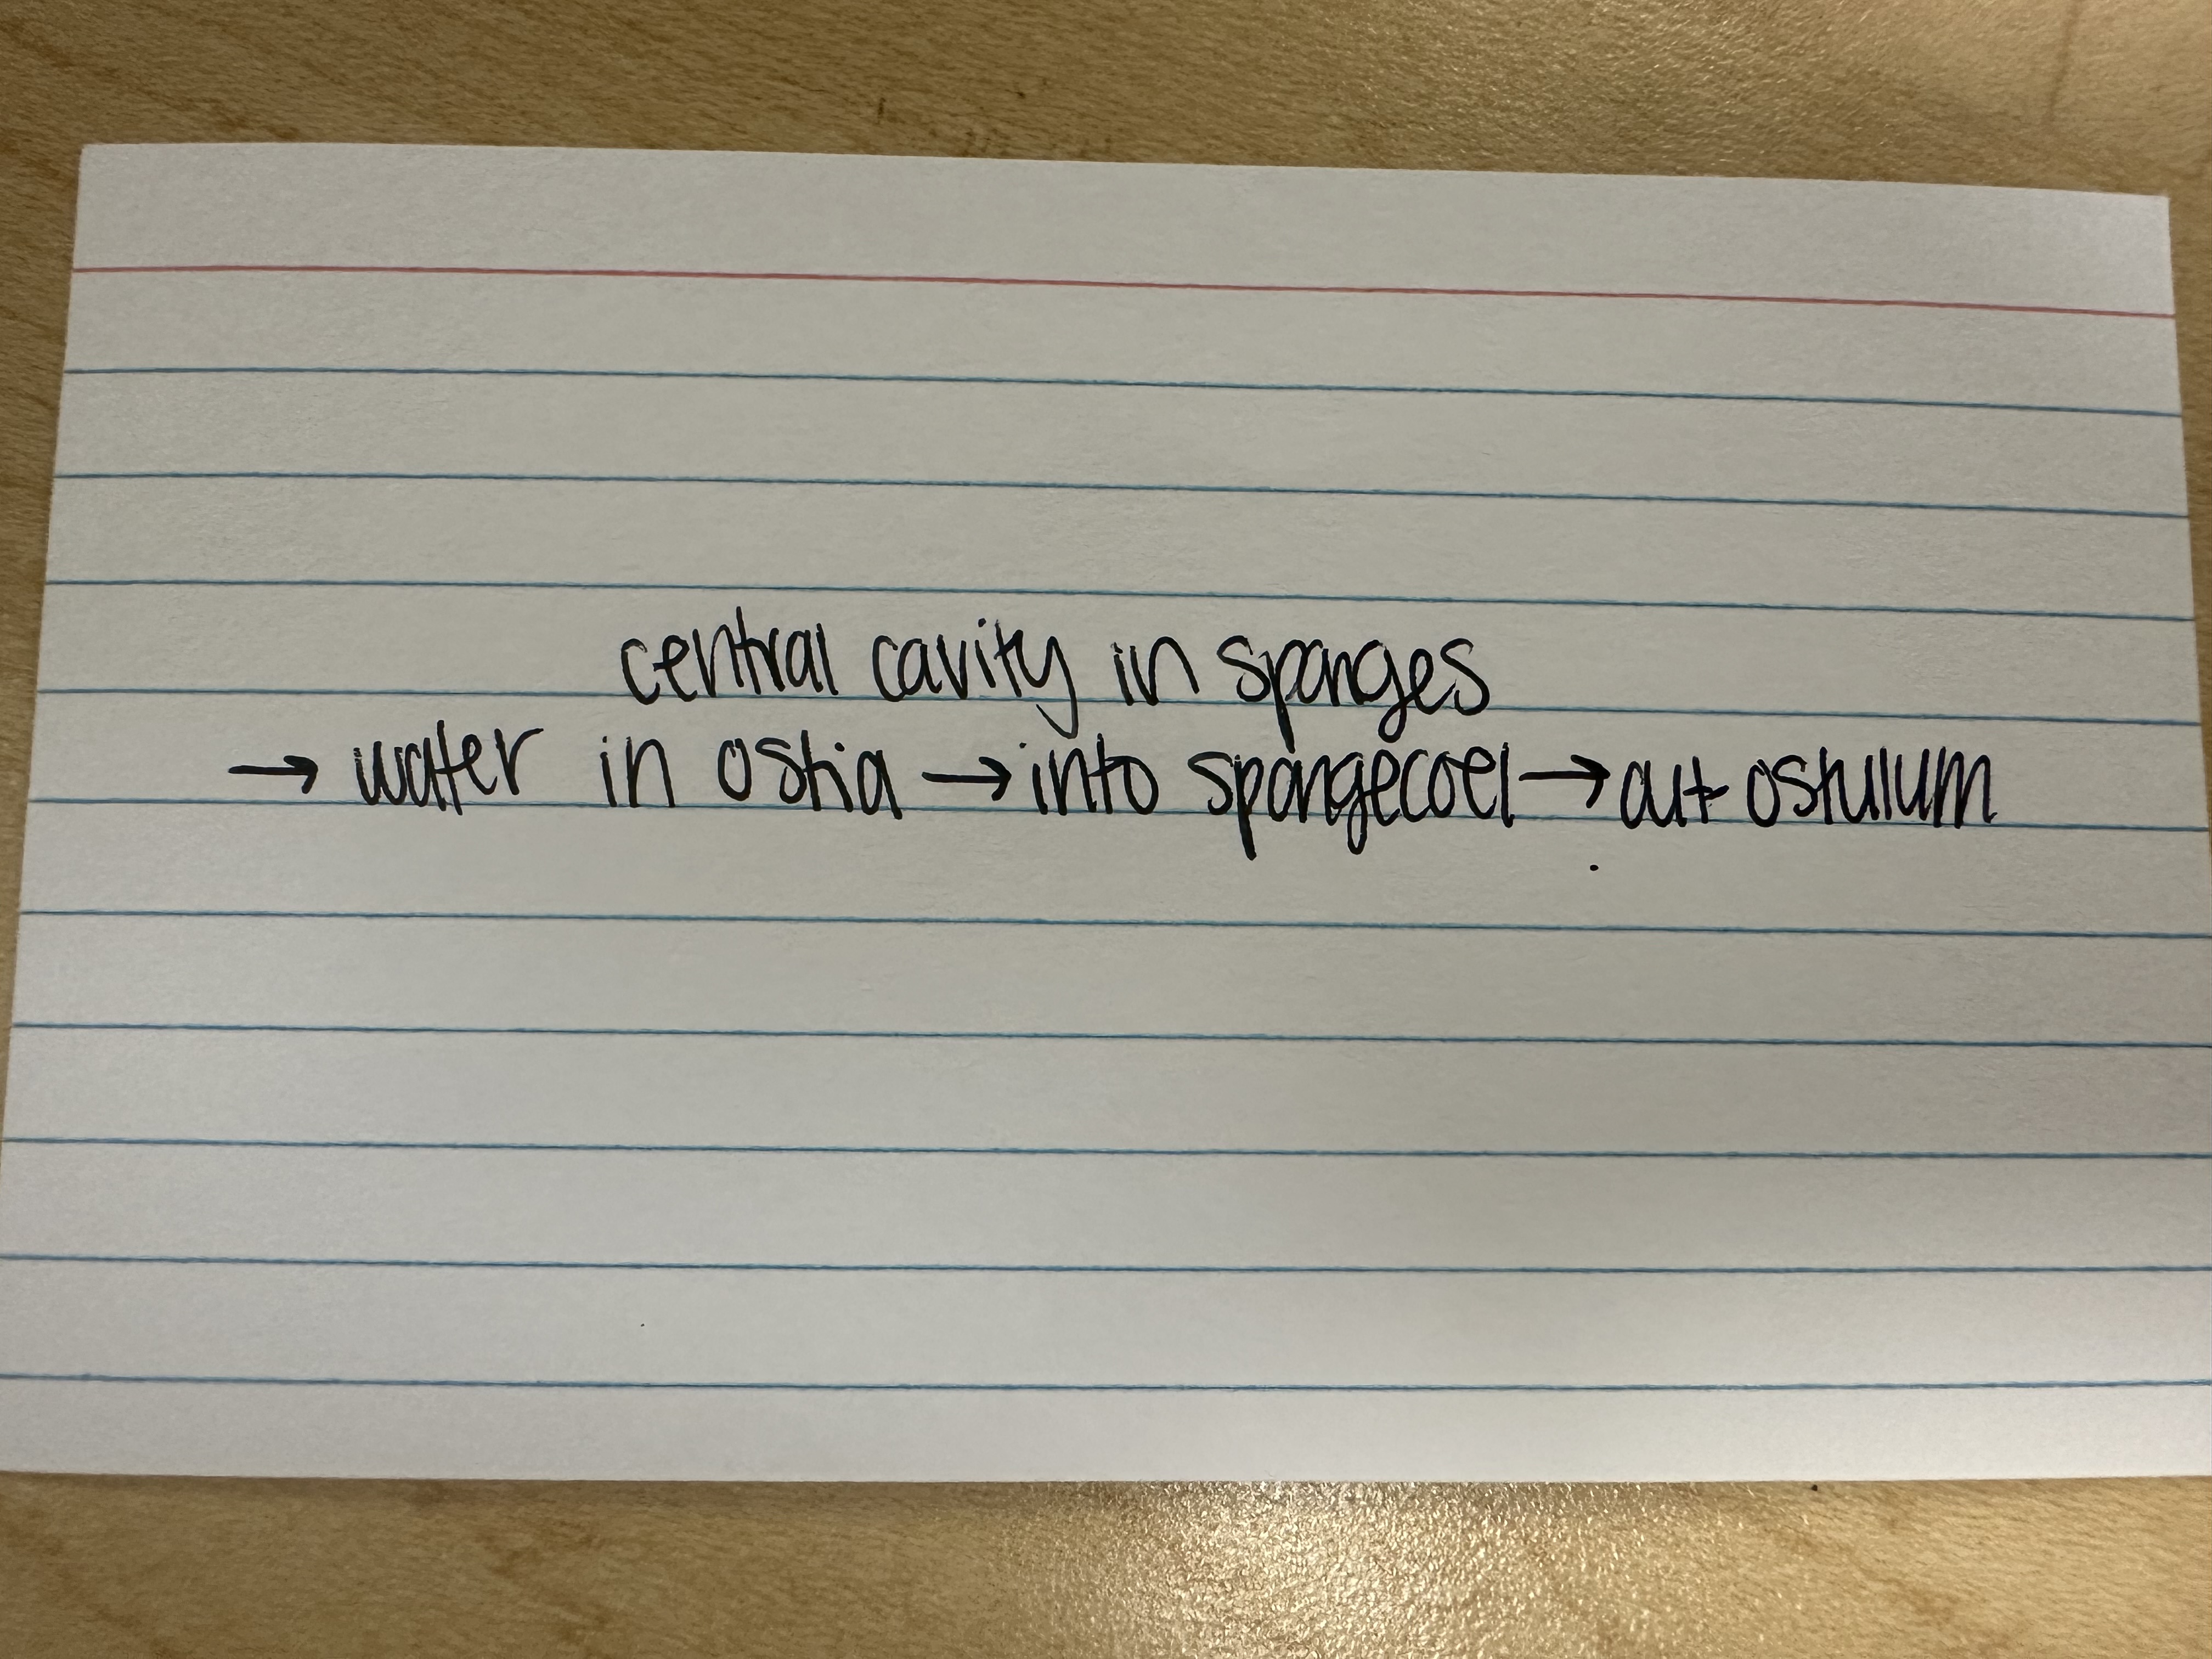 central cavity in sponges
→ water in ostia → into spongecoel → out ostulum